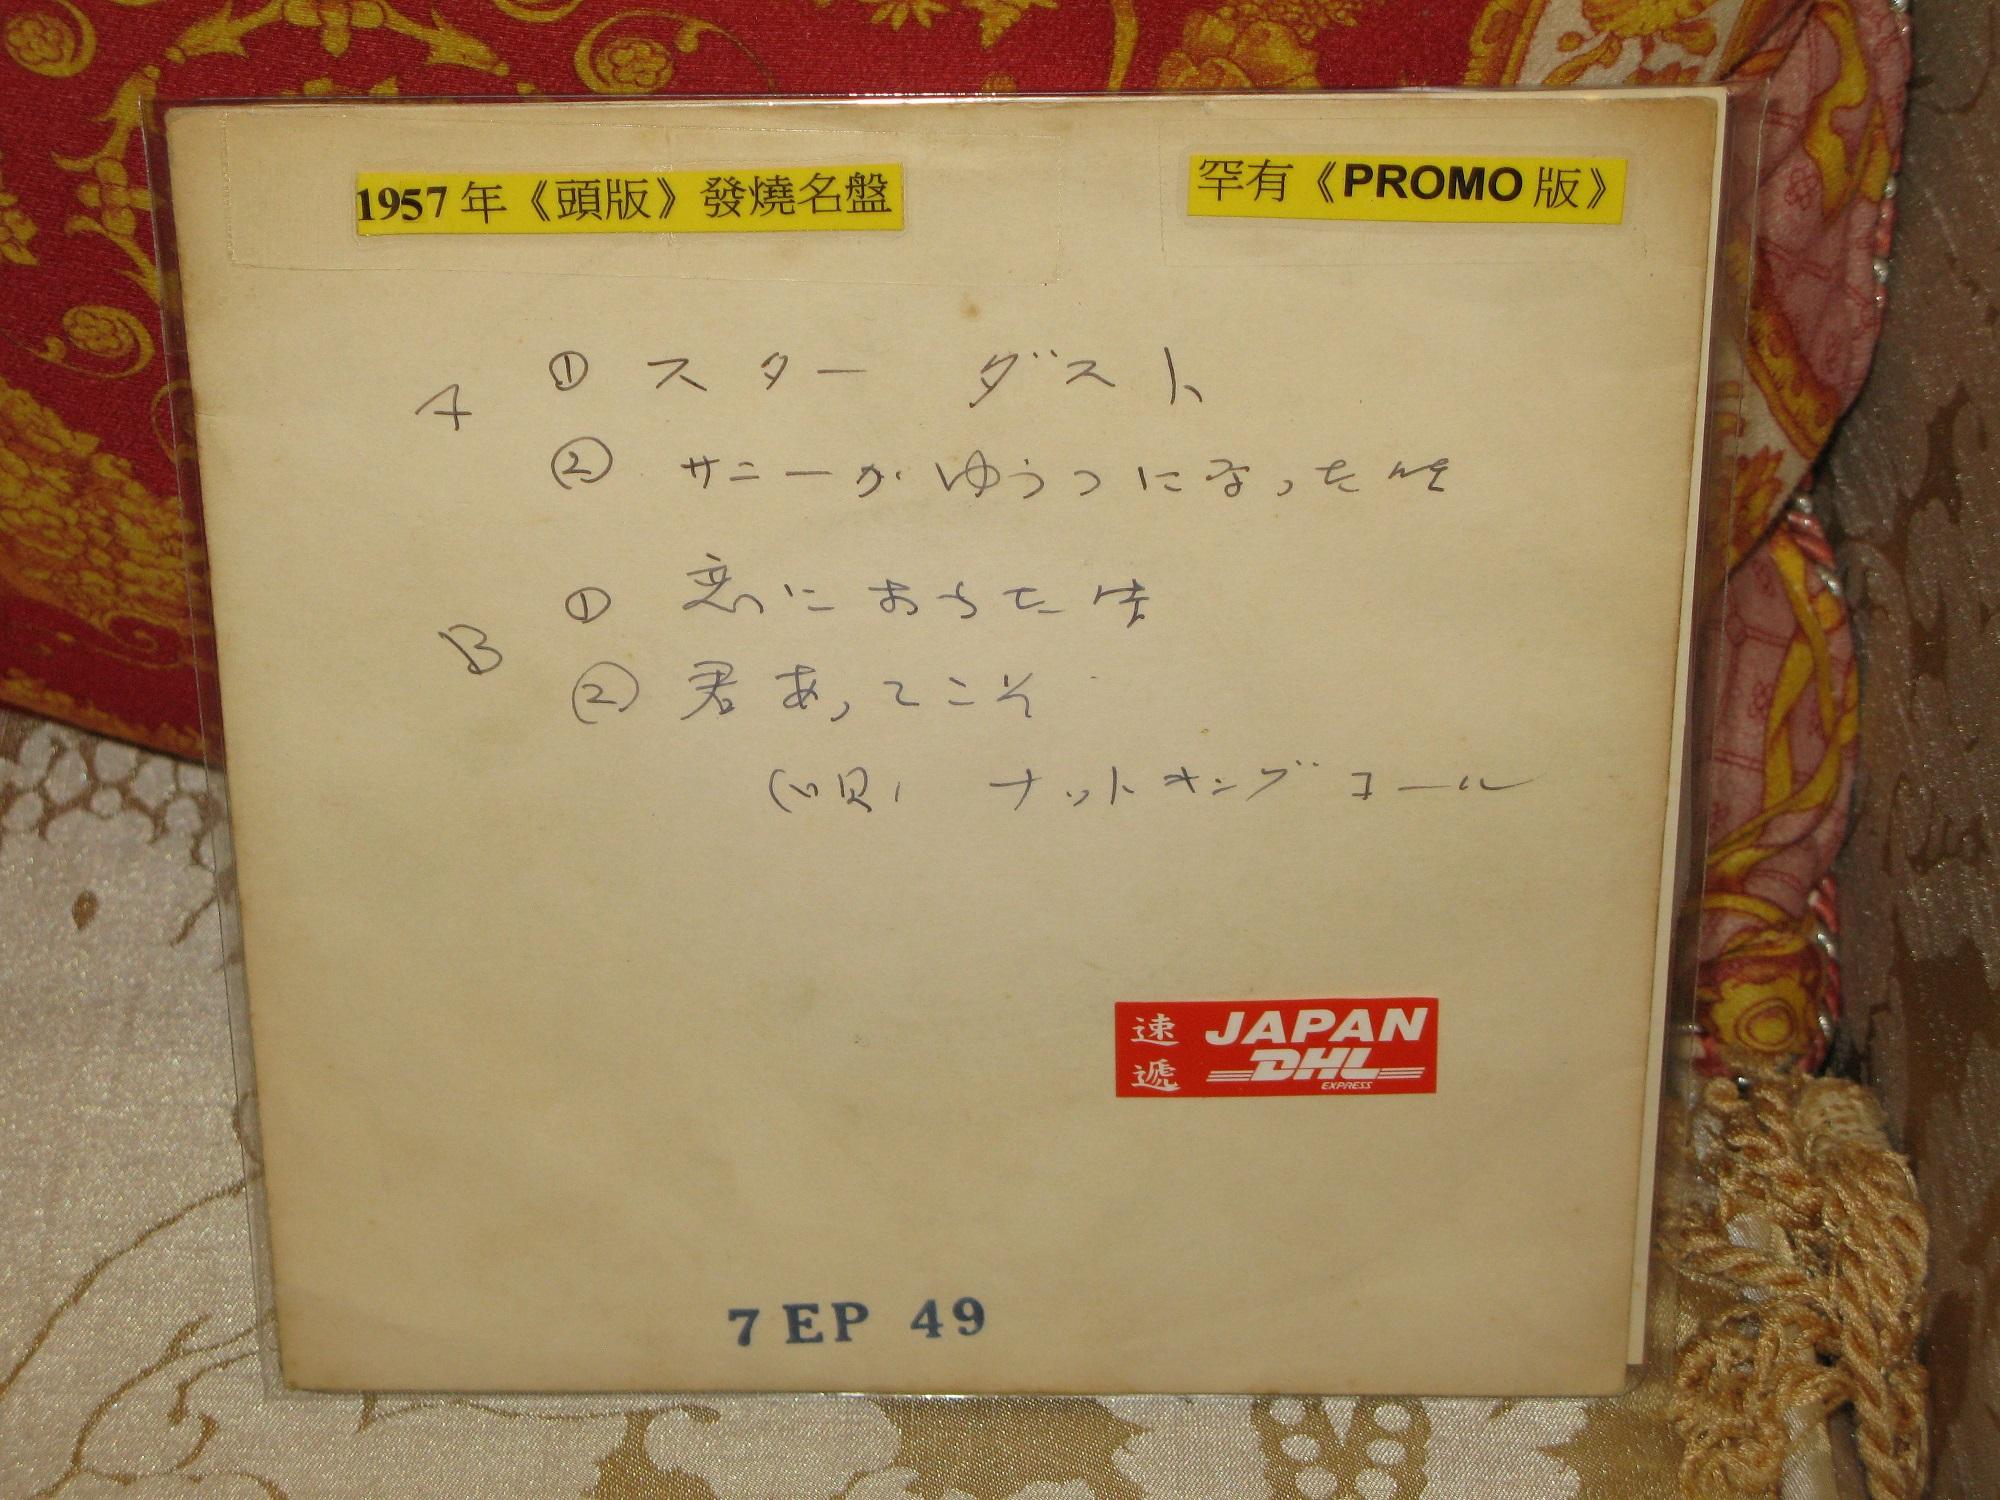 1957年《頭版》發燒名盤
罕有《PROMO版》
A ① スター ダスト
② サニーがゆうつになった時
B ① 恋におちた時
② 君あってこそ
(唄) ナットキングコール
速遞 JAPAN
DHL
EXPRESS
7 EP 49